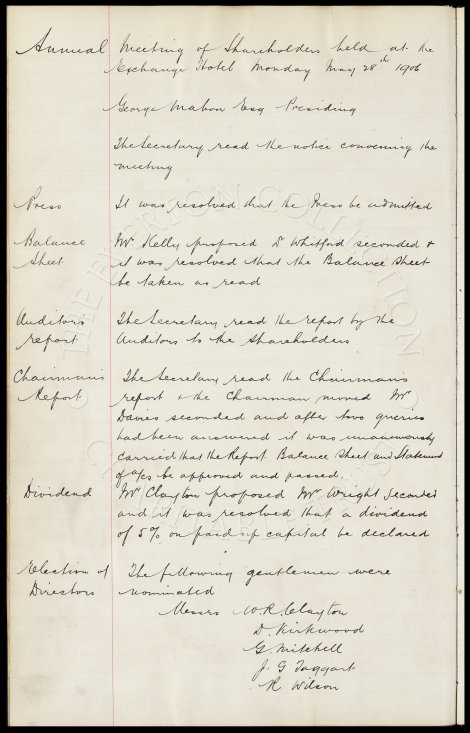 Annual Meeting of Shareholders held at the
Exchange Hotel Monday May 28th 1906
George Mahon Esq Presiding
The Secretary read the notice convening the
meeting
Press It was resolved that the Press be admitted
Balance Mr Kelly proposed Dr Whitford seconded &
Sheet it was resolved that the Balance Sheet
be taken as read
Auditors The Secretary read the report by the
report Auditors to the Shareholders
Chairman's The Secretary read the Chairman's
Report report & the Chairman moved Mr
Davies seconded and after two queries
had been answered it was unanimously
carried that the Report Balance Sheet and Statement
of a/cs be approved and passed.
Dividend Mr Clayton proposed Mr Wright seconded
and it was resolved that a dividend
of 5% on paid up capital be declared
Election of The following gentlemen were
Directors nominated
Messrs W.R. Clayton
D. Kirkwood
G. Mitchell
J. G Taggart
R Wilson
THE EVERTON COLLECTION